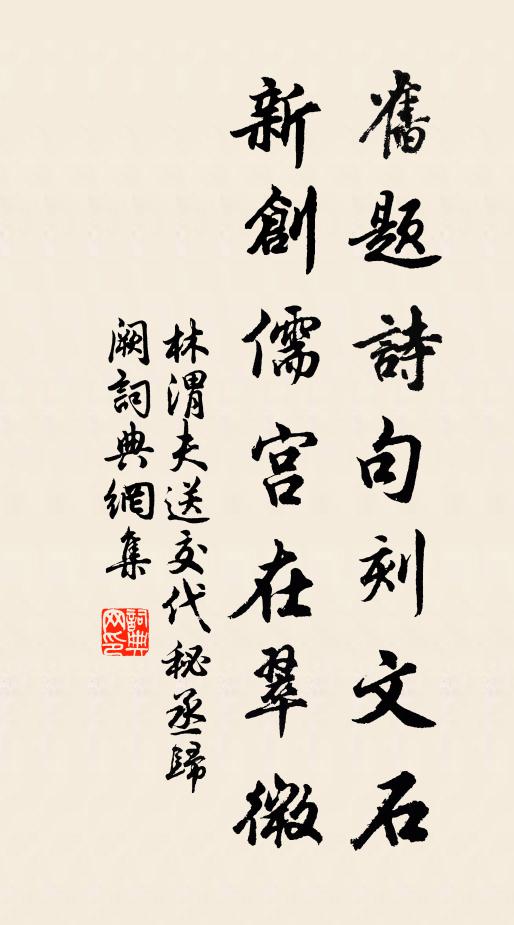 舊题詩句刻文石
新創儒宫在翠微
林渭夫送交代秘丞歸
阙詞典網集
詞典
网印